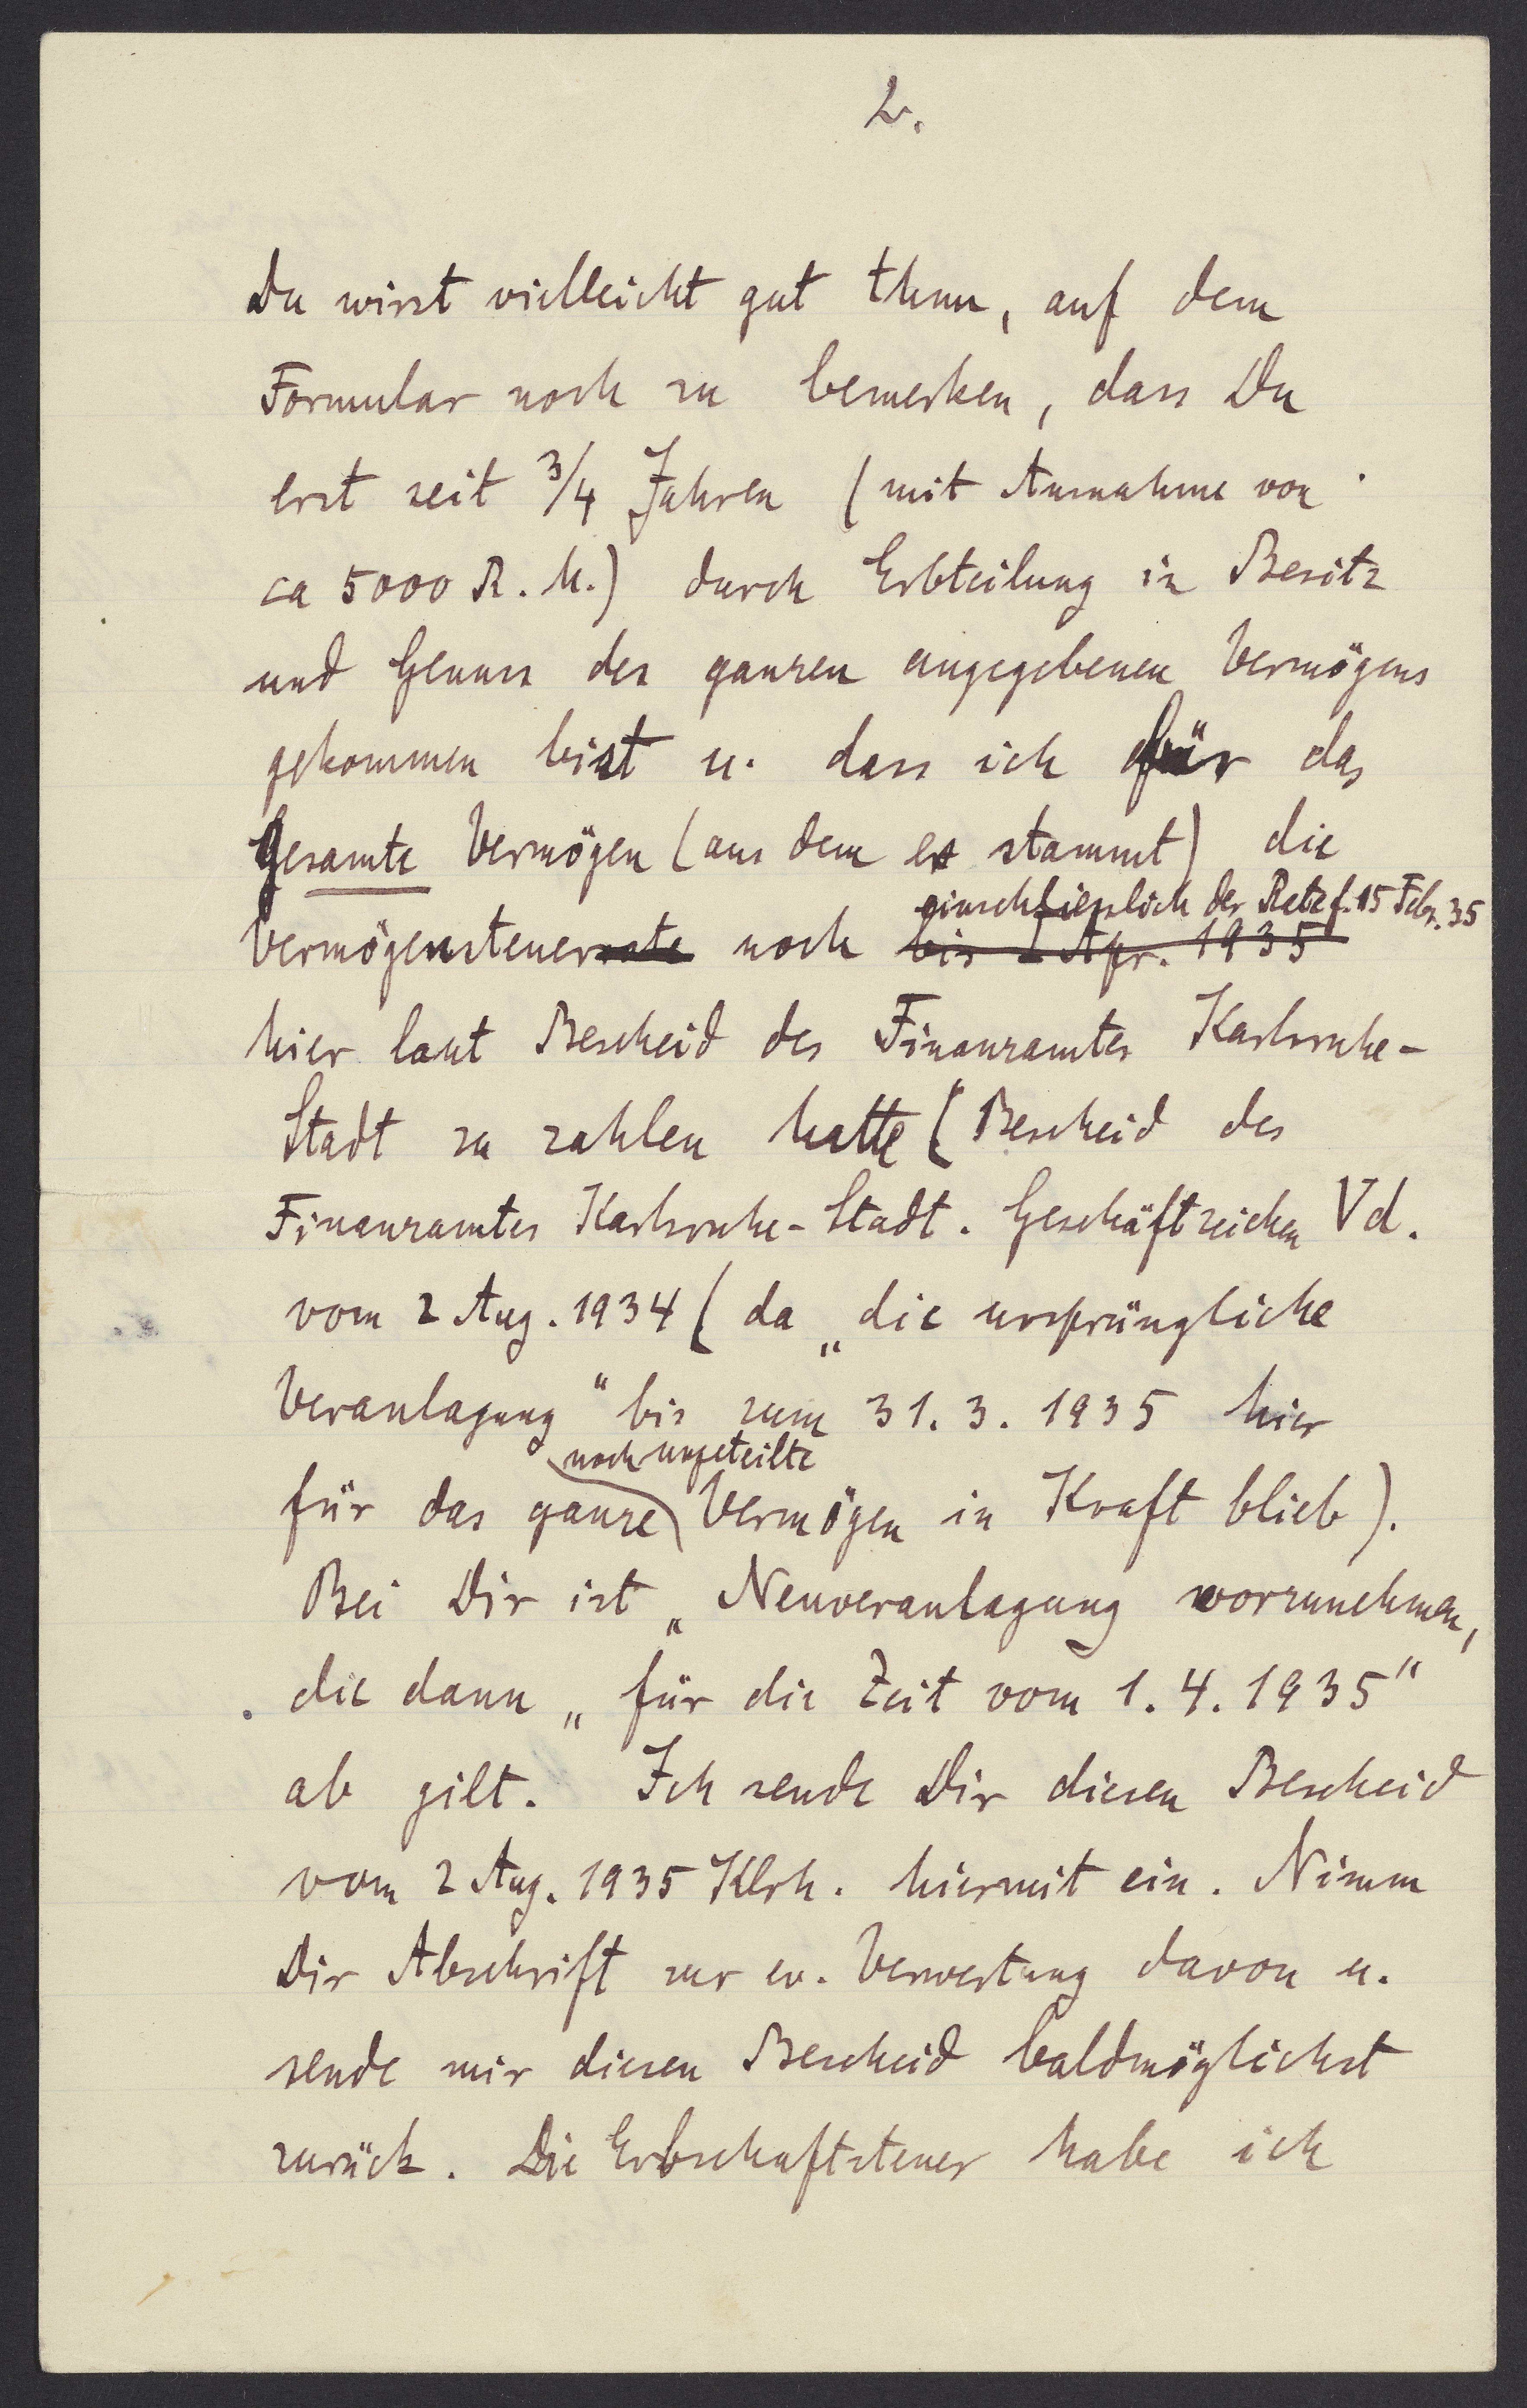 2.
Du wirst vielleicht gut thun, auf dem
Formular noch zu bemerken, dass Du
erst seit 3/4 Jahren (mit Ausnahme von
ca 5000 R. M.) durch Erbteilung in Besitz
und Genuss des ganzen angegebenen Vermögens
gekommen bist u. dass ich für das
gesamte Vermögen (aus dem es stammt) die
einschliesslich der Rate f. 15 Febr. 35
Vermögensteuerrate noch bis 1 Apr. 1935
hier laut Bescheid des Finanzamtes Karlsruhe-
Stadt zu zahlen hatte (Bescheid des
Finanzamtes Karlsruhe-Stadt. Geschäftzeichen Vd.
vom 2 Aug. 1934 (da „die ursprüngliche
Veranlagung“ bis zum 31. 3. 1935 hier
noch ungeteilte
für das ganze Vermögen in Kraft blieb).
Bei Dir ist „Neuveranlagung vorzunehmen,
die dann „für die Zeit vom 1. 4. 1935“
ab gilt. Ich sende Dir diesen Bescheid
vom 2 Aug. 1935 Klrh. hiermit ein. Nimm
Dir Abschrift zur ev. Verwertung davon u.
sende mir diesen Bescheid baldmöglichst
zurück. Die Erbschaftsteuer habe ich